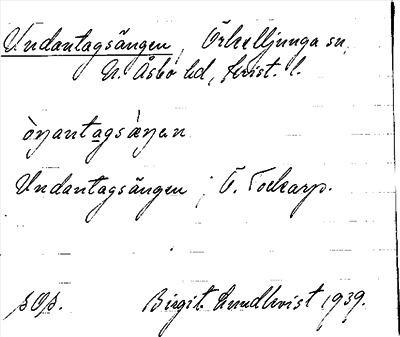 Undantagsängen, Örkelljunga sn,
N. Åsbo hd, Krist. l.
òŋantagsàŋen
Undantagsängen ; Ö. Tockarp.
sOp. Birgit Lundkvist 1939.